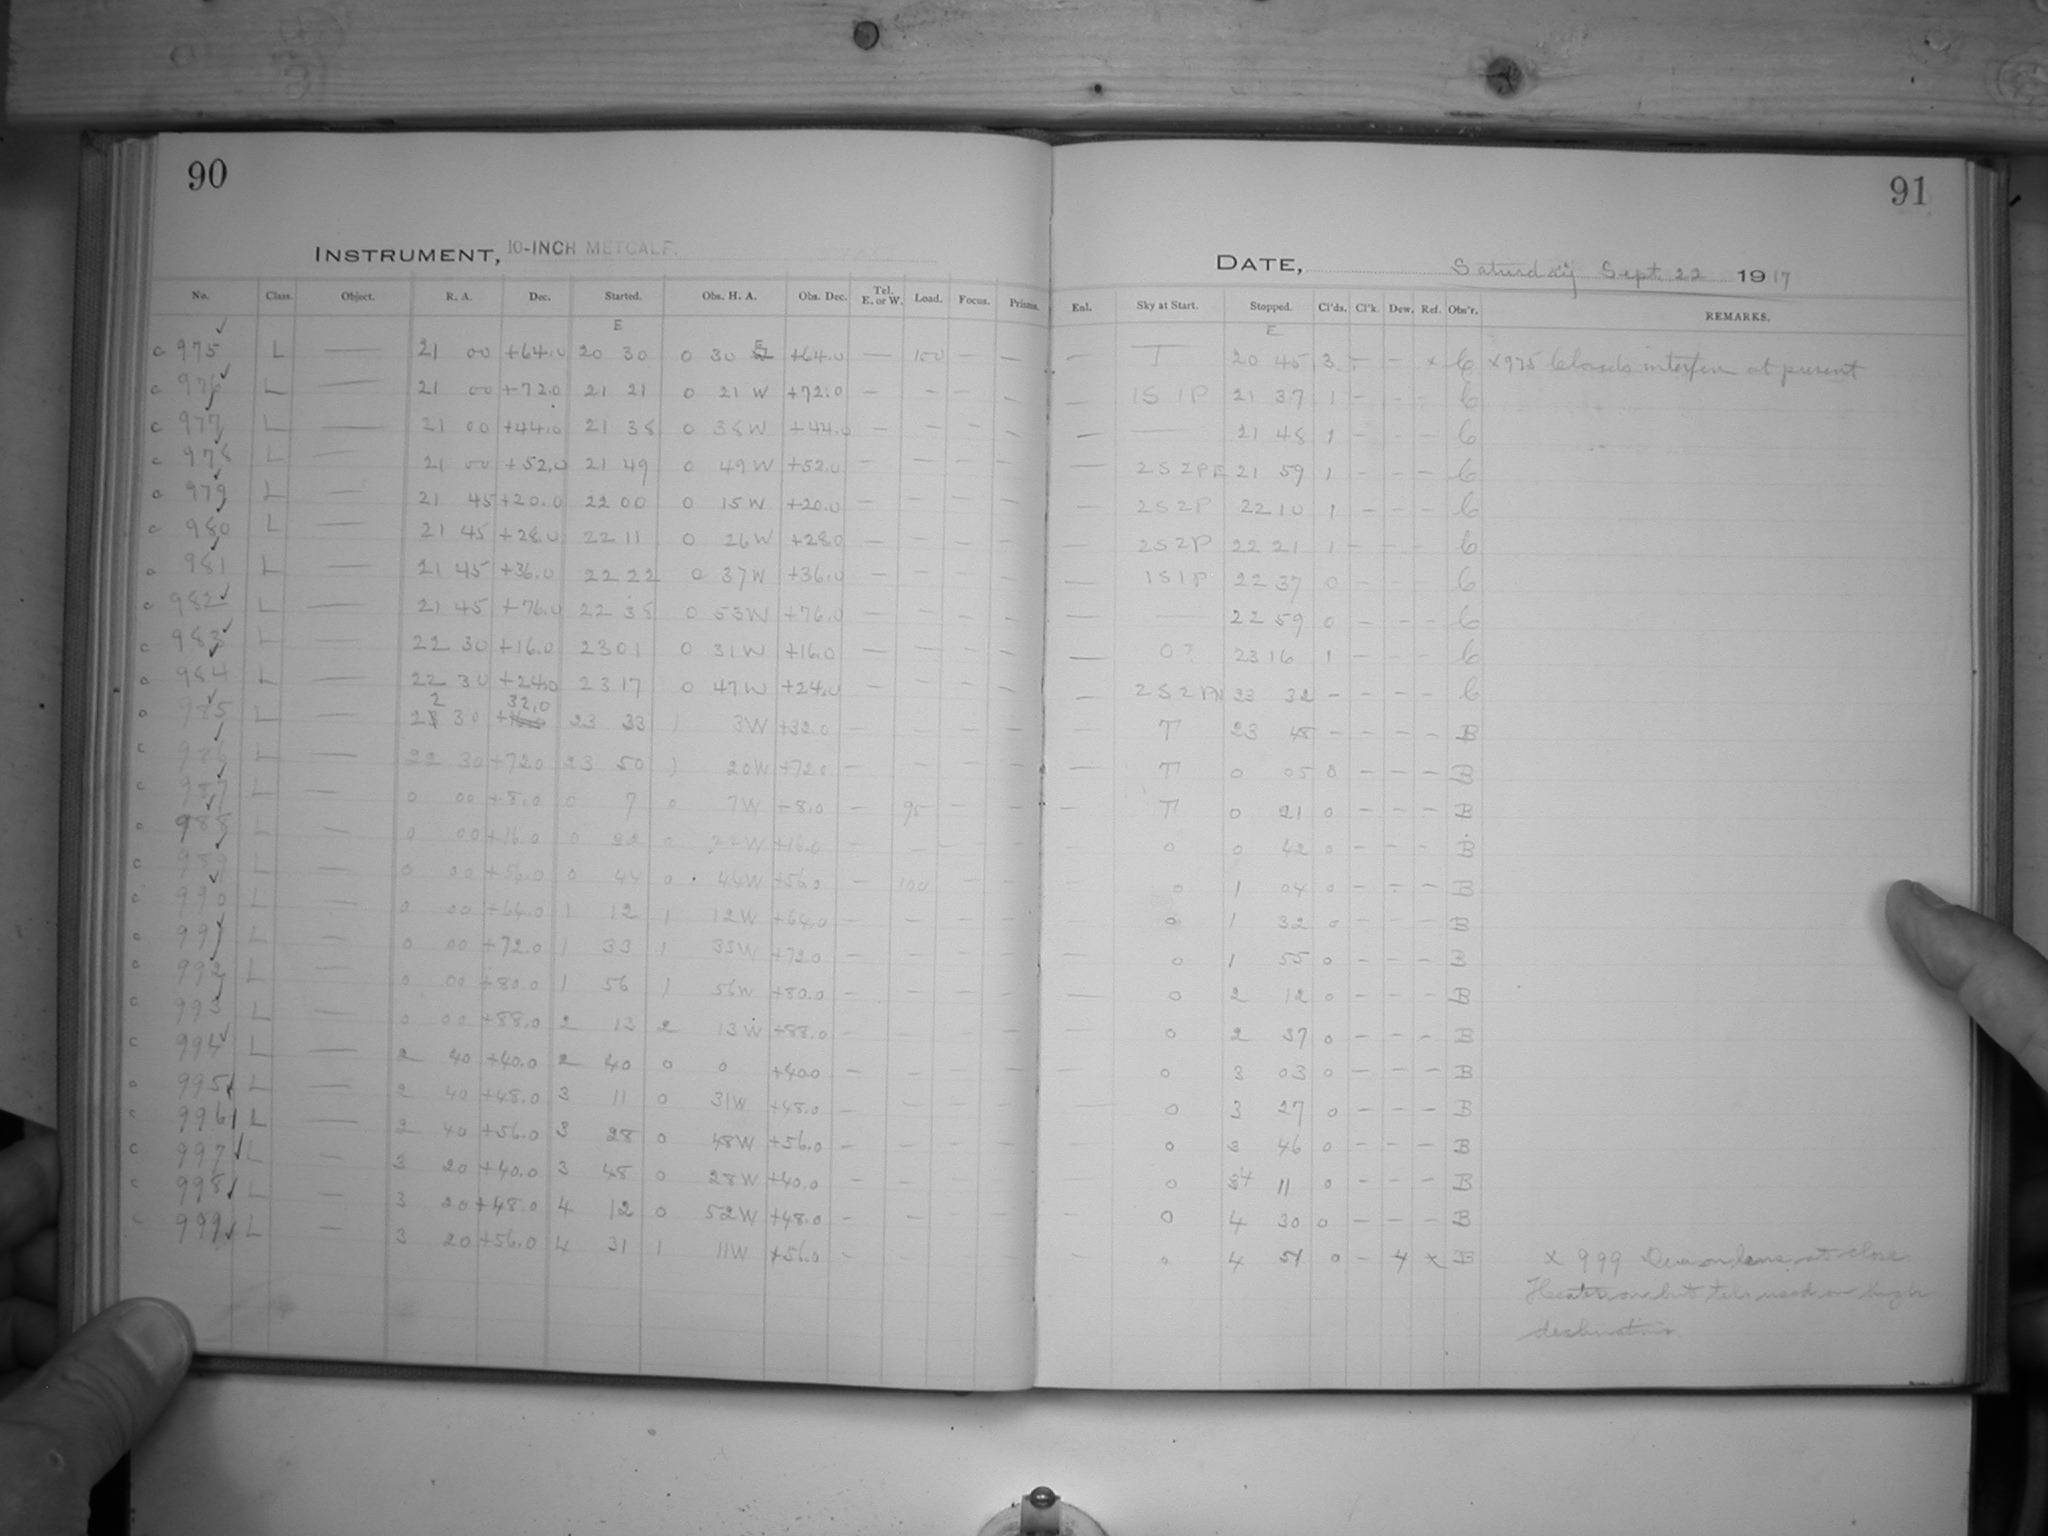 90
91
INSTRUMENT, 10-INCH METCALF.
DATE, Saturday Sept. 22 1917
No. Class. Object. R. A. Dec. Started. Obs. H. A. Obs. Dec. Tel. E. or W. Load. Focus. Prisms. Enl. Sky at Start. Stopped. Cl'ds. Cl'k. Dew. Ref. Obs'r. REMARKS.
E E
c 975 ✓ L — 21 00 +64.0 20 30 0 30 E +64.0 — 100 — — — T 20 45 3 — — x C x 975 Clouds interfere at present
c 976 ✓ L — 21 00 +72.0 21 21 0 21 W +72.0 — — — — — 1S 1P 21 37 1 — — — C
c 977 ✓ L — 21 00 +44.0 21 38 0 38 W +44.0 — — — — — — 21 48 1 — — — C
c 978 ✓ L — 21 00 +52.0 21 49 0 49 W +52.0 — — — — — 2S 2PF 21 59 1 — — — C
c 979 ✓ L — 21 45 +20.0 22 00 0 15 W +20.0 — — — — — 2S 2P 22 10 1 — — — C
c 980 L — 21 45 +28.0 22 11 0 26 W +28.0 — — — — — 2S 2P 22 21 1 — — — C
c 981 ✓ L — 21 45 +36.0 22 22 0 37 W +36.0 — — — — — 1S 1P 22 37 0 — — — C
c 982 ✓ L — 21 45 +76.0 22 38 0 53 W +76.0 — — — — — — 22 59 0 — — — C
c 983 ✓ L — 22 30 +16.0 23 01 0 31 W +16.0 — — — — — 0? 23 16 1 — — — C
c 984 ✓ L — 22 30 +24.0 23 17 0 47 W +24.0 — — — — — 2S 2PN 23 32 — — — — C
c 985 ✓ L — 22 30 +32.0 23 33 1 3 W +32.0 — — — — — T 23 48 — — — — B
c 986 ✓ L — 22 30 +72.0 23 50 1 20 W +72.0 — — — — — T 0 05 0 — — — B
c 987 ✓ L — 0 00 +8.0 0 7 0 7 W +8.0 — 95 — — — T 0 21 0 — — — B
c 988 ✓ L — 0 00 +16.0 0 22 0 22 W +16.0 — — — — — 0 0 42 0 — — — B
c 989 ✓ L — 0 00 +56.0 0 44 0 44 W +56.0 — 100 — — — 0 1 04 0 — — — B
c 990 ✓ L — 0 00 +64.0 1 12 1 12 W +64.0 — — — — — 0 1 32 0 — — — B
c 991 ✓ L — 0 00 +72.0 1 33 1 33 W +72.0 — — — — — 0 1 55 0 — — — B
c 992 ✓ L — 0 00 +80.0 1 56 1 56 W +80.0 — — — — — 0 2 12 0 — — — B
c 993 ✓ L — 0 00 +88.0 2 13 2 13 W +88.0 — — — — — 0 2 37 0 — — — B
c 994 ✓ L — 2 40 +40.0 2 40 0 0 +40.0 — — — — — 0 3 03 0 — — — B
c 995 ✓ L — 2 40 +48.0 3 11 0 31 W +48.0 — — — — — 0 3 27 0 — — — B
c 996 ✓ L — 2 40 +56.0 3 28 0 48 W +56.0 — — — — — 0 3 46 0 — — — B
c 997 ✓ L — 3 20 +40.0 3 48 0 28 W +40.0 — — — — — 0 4 11 0 — — — B
c 998 ✓ L — 3 20 +48.0 4 12 0 52 W +48.0 — — — — — 0 4 30 0 — — — B
c 999 ✓ L — 3 20 +56.0 4 31 1 11 W +56.0 — — — — — 0 4 51 0 — 4 x B x 999 Dew on lens at close
Heater on but tel. used on high
declinations